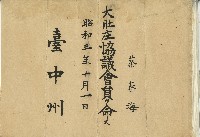 蔡永海
大肚庄協議會員ヲ命ス
昭和三年十月一日
臺中州